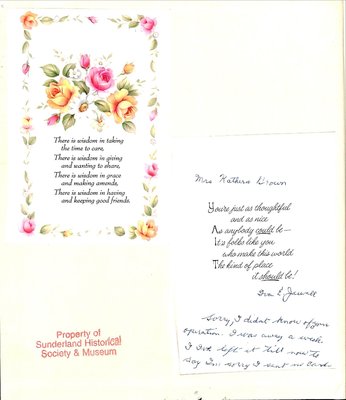 There is wisdom in taking
the time to care,
There is wisdom in giving
and wanting to share,
There is wisdom in grace
and making amends,
There is wisdom in having
and keeping good friends.
Property of
Sunderland Historical
Society & Museum
Mrs Kathern Brown
You're just as thoughtful
and as nice
As anybody could be—
It's folks like you
who make this world
The kind of place
it should be!
Jewell
Sorry, I didnt know of your
operation. I was away a week.
I left it till now to
say I'm sorry I sent no card.